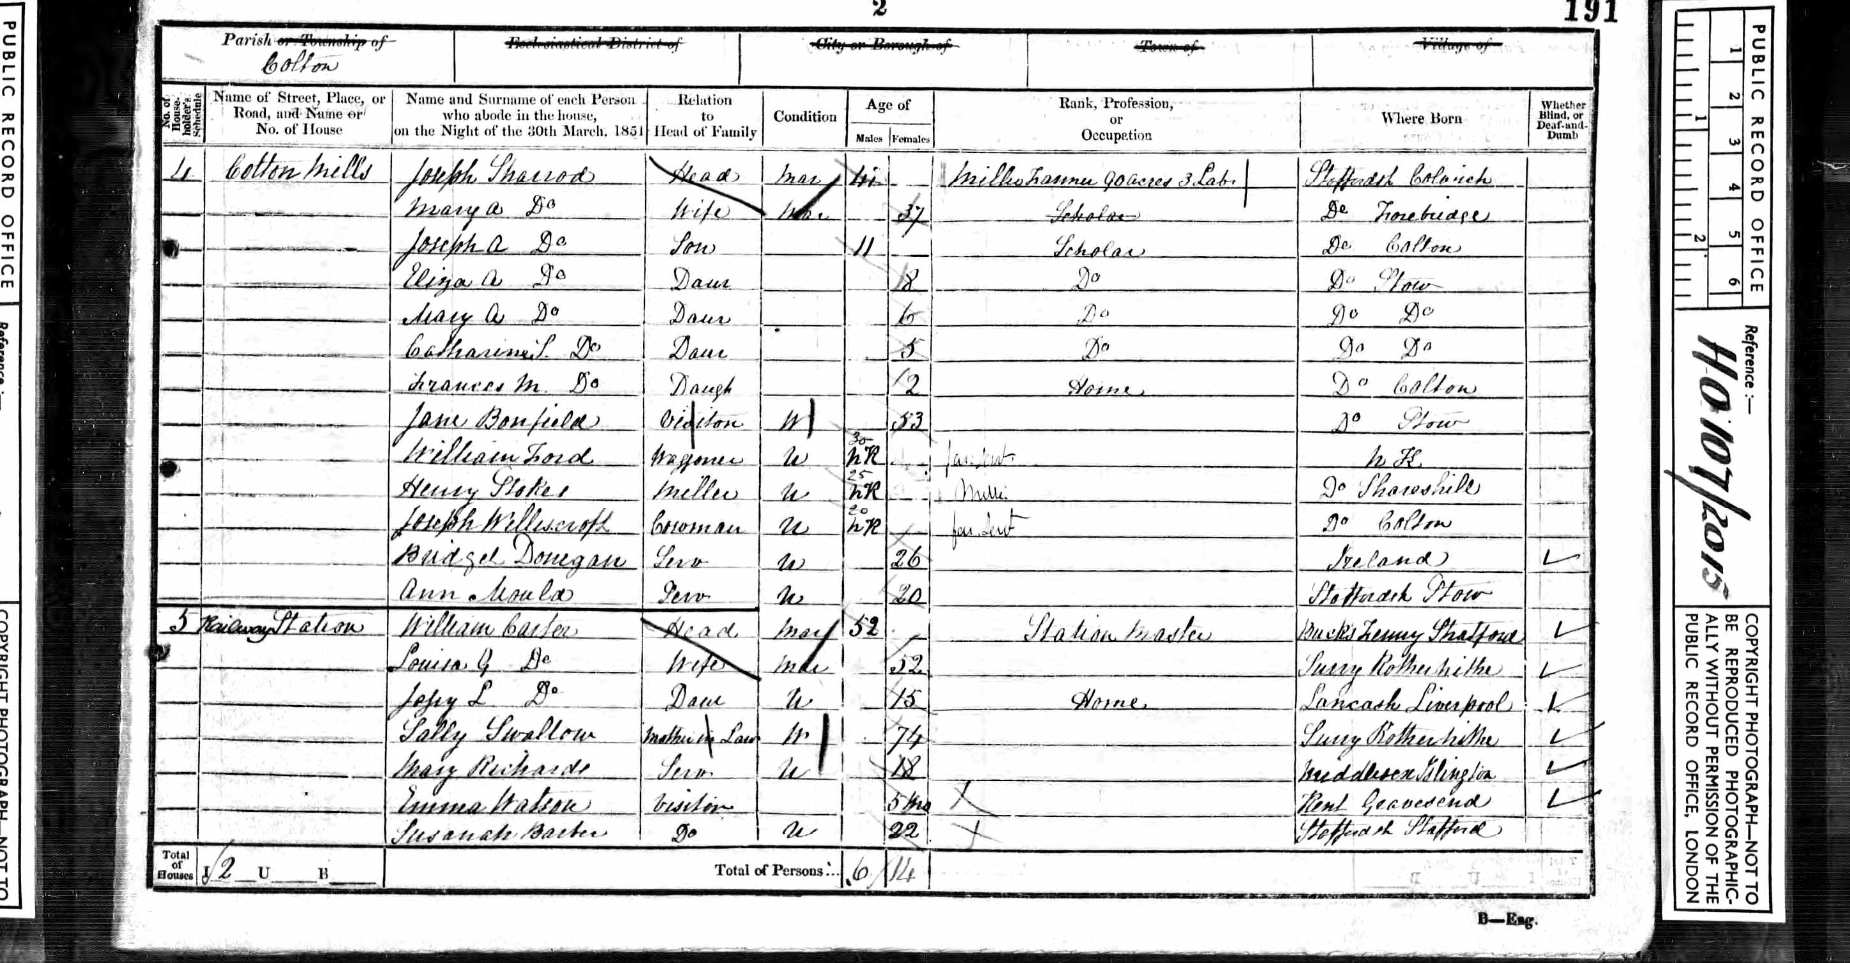 2
191
Parish or Township of
Colton
Ecclesiastical District of
City or Borough of
Town of
Village of
No. of House-holder's Schedule
Name of Street, Place, or Road, and Name or No. of House
Name and Surname of each Person who abode in the house, on the Night of the 30th March, 1851
Relation to Head of Family
Condition
Age of
Males
Females
Rank, Profession, or Occupation
Where Born
Whether Blind, or Deaf-and-Dumb
4 Colton Mills Joseph Sharrod Head Mar 41 Miller Farmer 90 acres 3 Lab. Staffordsh Colwich
Mary A Do Wife Mar 37 Scholar Do Forebridge
Joseph A Do Son 11 Scholar Do Colton
Eliza A Do Daur 8 Do Do Stow
Mary A Do Daur 6 Do Do Do
Catharine S. Do Daur 5 Do Do Do
Frances M. Do Daugh 2 Home Do Colton
Jane Bonfield Visitor W 53 Do Stow
William Ford Waggoner U 30 NK far Serv NK
Henry Stokes Miller U 25 NK Mille Do Shareshill
Joseph Welliscroft Cowman U 20 NK far Serv Do Colton
Bridget Donegan Serv U 26 Ireland
Ann Mould Serv U 20 Staffordsh Stow
5 Railway Station William Carter Head Mar 52 Station Master Bucks Fenny Stratford
Louisa G Do Wife Mar 52 Surry Rotherhithe
L Do Daur U 15 Home Lancash Liverpool
Sally Swallow Mother in Law W 74 Surry Rotherhithe
Mary Richards Serv U 18 Middlesex Islington
Emma Watson Visitor 5 Mo Kent Gravesend
Susanah Barber Do U 22 Staffordsh Stafford
Total of Houses I 2 U B Total of Persons 6 14
B—Eng.
PUBLIC RECORD OFFICE
Reference :—
COPYRIGHT PHOTOGRAPH—NOT TO
PUBLIC RECORD OFFICE
1 2 3 4 5 6
1 2
Reference :—
HO 107/2015
COPYRIGHT PHOTOGRAPH—NOT TO
BE REPRODUCED PHOTOGRAPHIC-
ALLY WITHOUT PERMISSION OF THE
PUBLIC RECORD OFFICE, LONDON